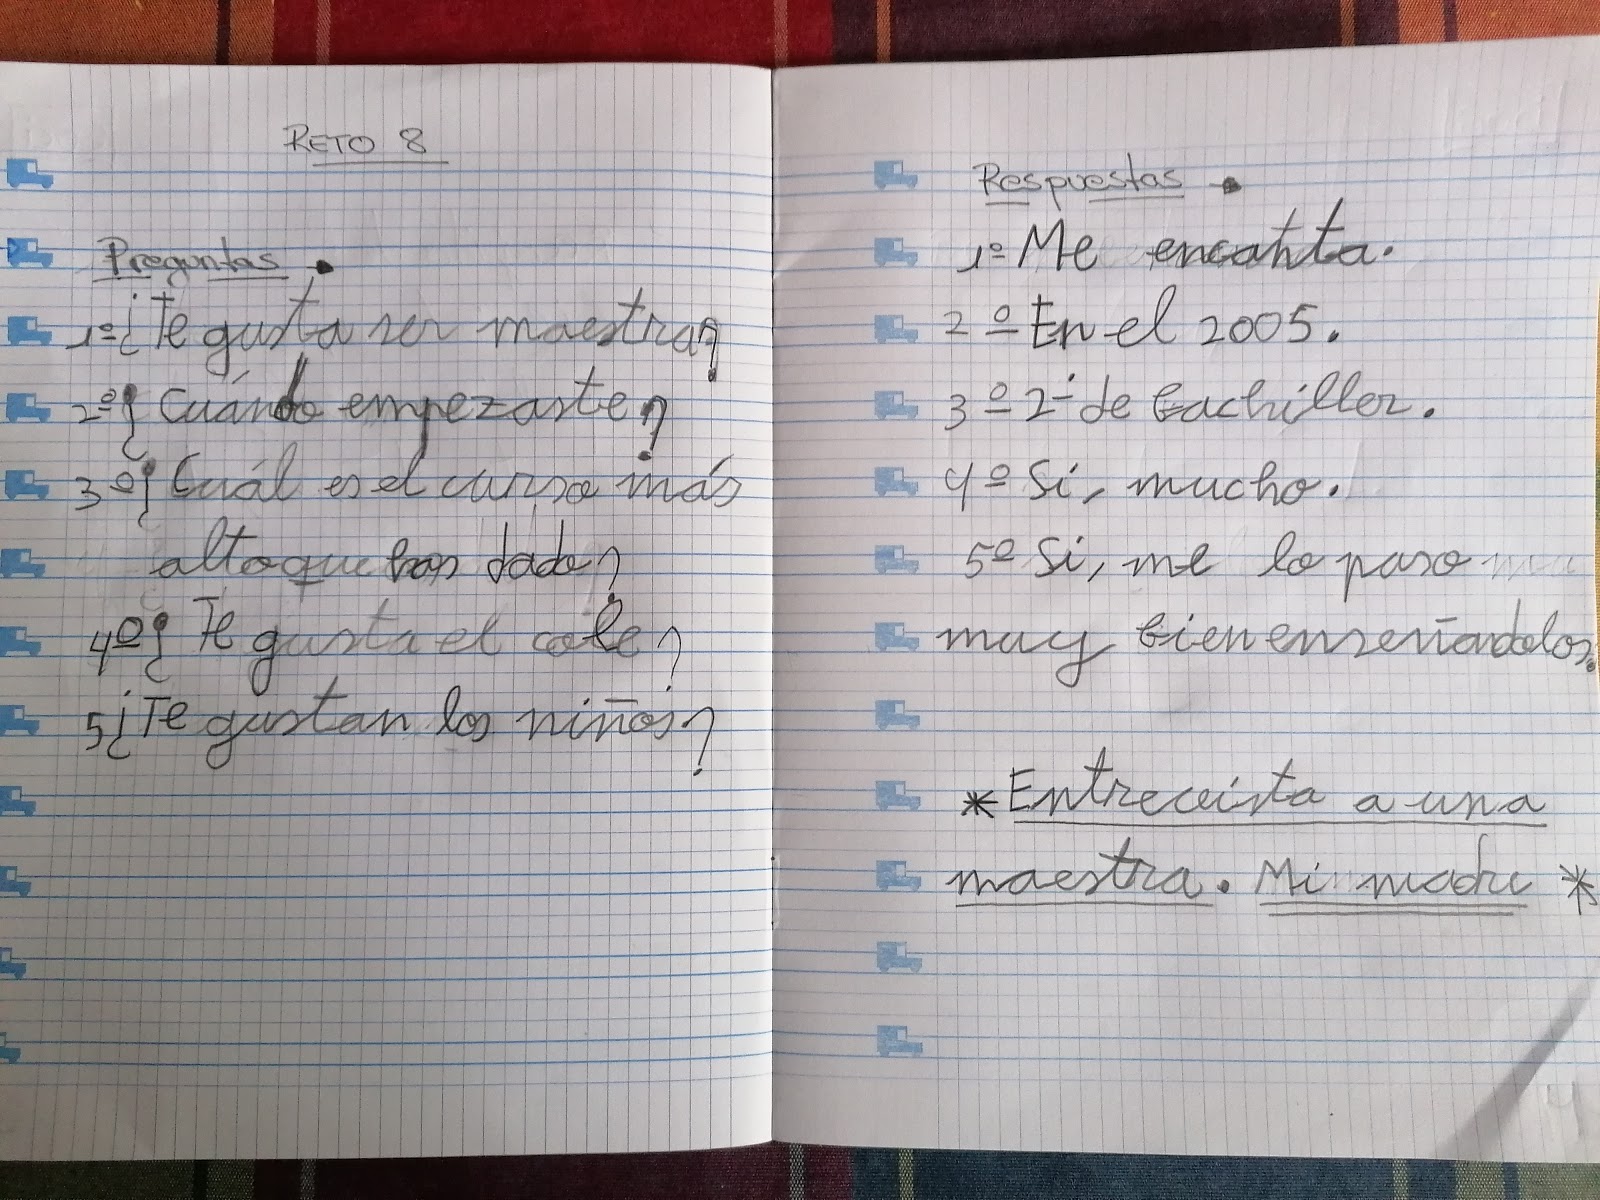 RETO 8
Preguntas.
1º ¿Te gusta ser maestra?
2º ¿Cuándo empezaste?
3º ¿Cuál es el curso más
alto que has dado?
4º ¿Te gusta el cole?
5 ¿Te gustan los niños?
Respuestas.
1º Me encanta.
2º En el 2005.
3º 2º de bachiller.
4º Si, mucho.
5º Si, me lo paso
muy bien enseñandolos.
*Entrevista a una
maestra. Mi madre *